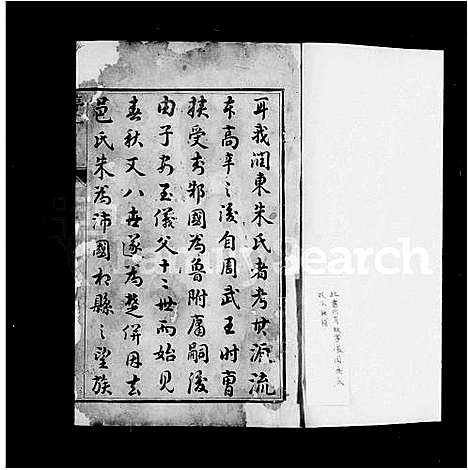 耳我潤東朱氏者考其源流
本高辛之後自周武王時曹
挾受封邾國為魯附庸嗣後
由子安至儀父十二世而始見
春秋又八世遂為楚併因去
邑氏朱為沛國相縣之望族
FamilySearch